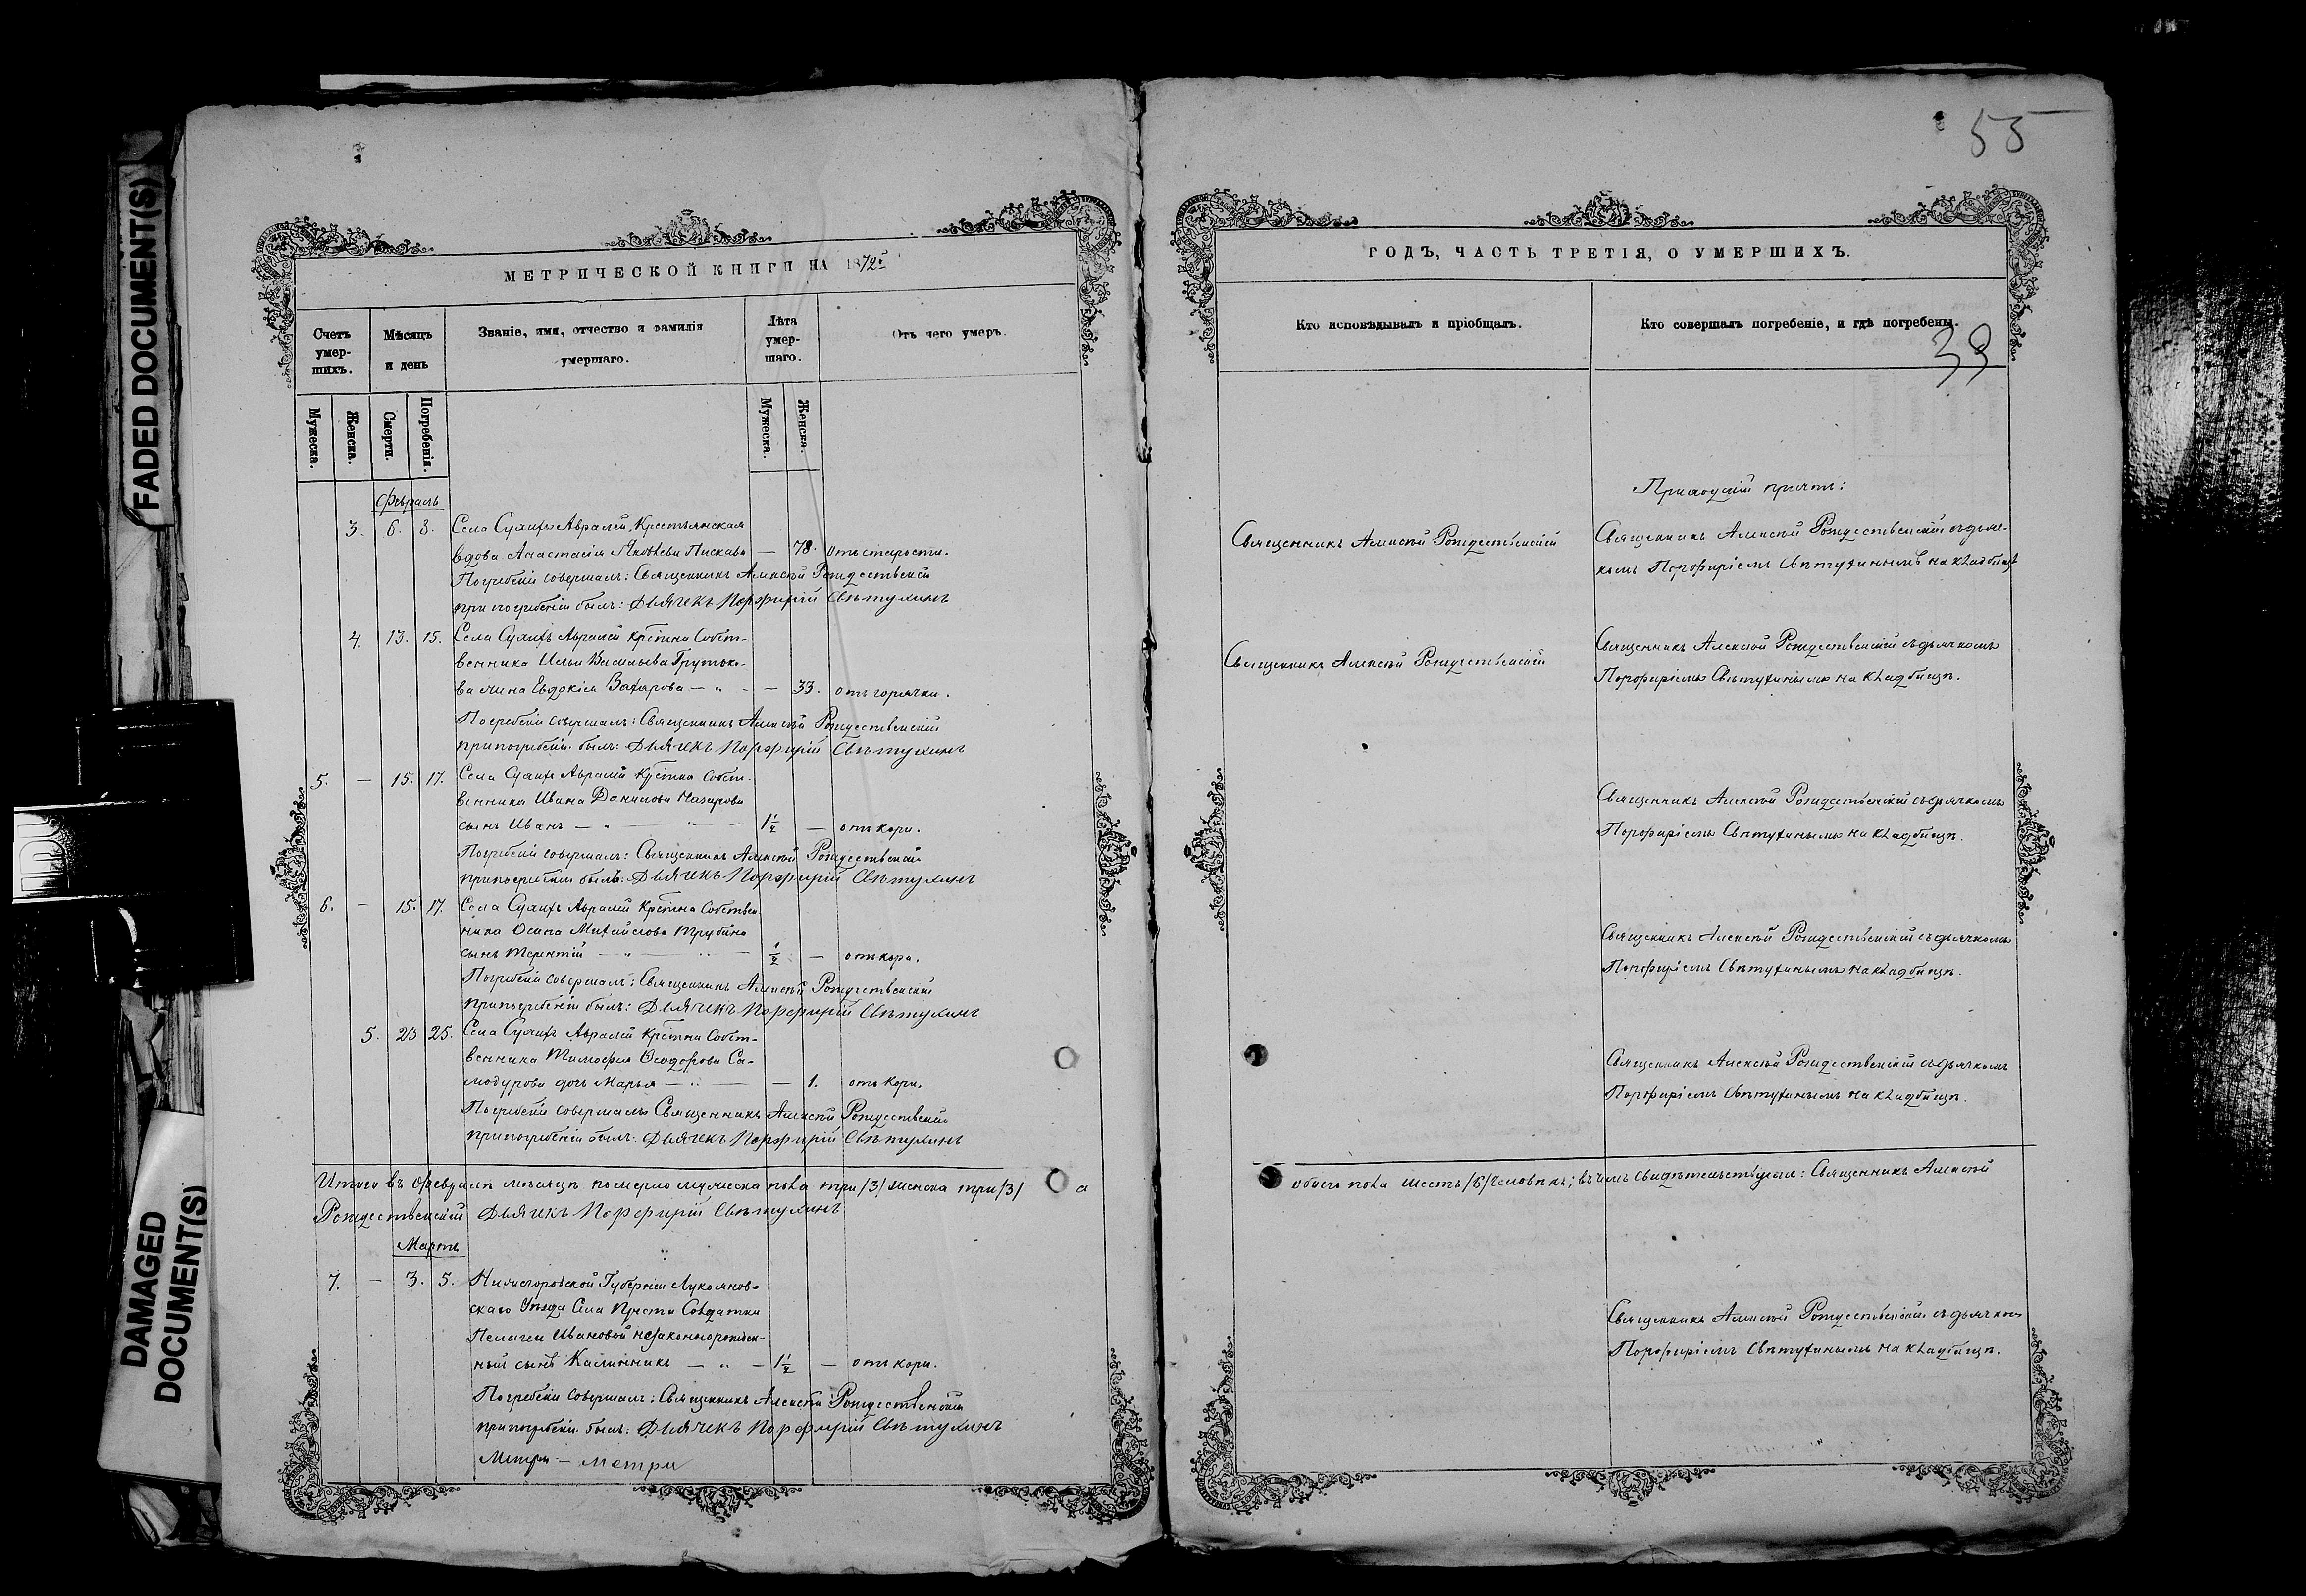 FADED DOCUMENT(S)
DAMAGED DOCUMENT(S)
МЕТРИЧЕСКОЙ КНИГИ НА 1872й
Счетъ умер-шихъ.
Мѣсяцъ и день
Званіе, имя, отчество и фамилія умершаго.
Лѣта умер-шаго.
Отъ чего умеръ.
Мужеска.
Женска.
Смерти.
Погребенія.
Мужеска.
Женска.
Февраль
3. 6. 8. Села Авралей Крестьянская
вдова Анастасія Яковлева — 78. отъ старости.
Погребеніе совершалъ: Священникъ Алексѣй Рождественскій
при погребеніи былъ: Дьячекъ Порфирій Свѣтухинъ
4. 13. 15. Села Авралей Крестьна Собст-
венника Ильи Васильева
жена Евдокія Захарова — „ — — 33. отъ горячки.
Погребеніе совершалъ: Священникъ Алексѣй Рождественскій
при погребеніи былъ: Дьячекъ Порфирій Свѣтухинъ
5. — 15. 17. Села Авралей Крестьна Собст-
венника Ивана Данилова Назарова
сынъ Иванъ — „ — „ — 1½ — отъ кори.
Погребеніе совершалъ: Священникъ Алексѣй Рождественскій
при погребеніи былъ: Дьячекъ Порфирій Свѣтухинъ
6. — 15. 17. Села Авралей Крестьна Собствен
ника Осипа Михайлова Трубина
сынъ Терентій — „ — „ — ½ — отъ кори.
Погребеніе совершалъ: Священникъ Алексѣй Рождественскій
при погребеніи былъ: Дьячекъ Порфирій Свѣтухинъ
5. 23 25. Села Авралей Крестьна Собст-
венника Тимофея Ѳеодорова Са-
модурова дочь Марья — „ — — 1. отъ кори.
Погребеніе совершалъ Священникъ Алексѣй Рождественскій
при погребеніи былъ: Дьячекъ Порфирій Свѣтухинъ
Итого въ Февралѣ мѣсяцѣ померло мужеска пола три /3/ женска три /3/ а
Рождественскій Дьячекъ Порфирій Свѣтухинъ
Мартъ
7. — 3. 5. Нижегородской Губерніи Лукоянов-
скаго Уѣзда Села Солдатки
Пелагеи Ивановой незаконнорожден-
ный сынъ Каллиникъ — „ — 1½ — отъ кори.
Погребеніе совершалъ: Священникъ Алексѣй Рождественскій
при погребеніи былъ: Дьячекъ Порфирій Свѣтухинъ
Метри — метри
55
ГОДЪ, ЧАСТЬ ТРЕТІЯ, О УМЕРШИХЪ.
Кто исповѣдывалъ и пріобщалъ.
Кто совершалъ погребеніе, и гдѣ погребены.
39
Приходскій причтъ:
Священникъ Алексѣй Рождественскій
Священникъ Алексѣй Рождественскій съ дьяч-
комъ Порфиріемъ Свѣтухинымъ на кладбищѣ
Священникъ Алексѣй Рождественскій
Священникъ Алексѣй Рождественскій съ дьячкомъ
Порфиріемъ Свѣтухинымъ на кладбищѣ.
Священникъ Алексѣй Рождественскій съ дьячкомъ
Порфиріемъ Свѣтухинымъ на кладбищѣ.
Священникъ Алексѣй Рождественскій съ дьячкомъ
Порфиріемъ Свѣтухинымъ на кладбищѣ.
Священникъ Алексѣй Рождественскій съ дьячкомъ
Порфиріемъ Свѣтухинымъ на кладбищѣ.
обоего пола шесть /6/ человѣкъ; въ чемъ свидѣтельствуемъ: Священникъ Алексѣй
Священникъ Алексѣй Рождественскій съ дьячкомъ
Порфиріемъ Свѣтухинымъ на кладбищѣ.